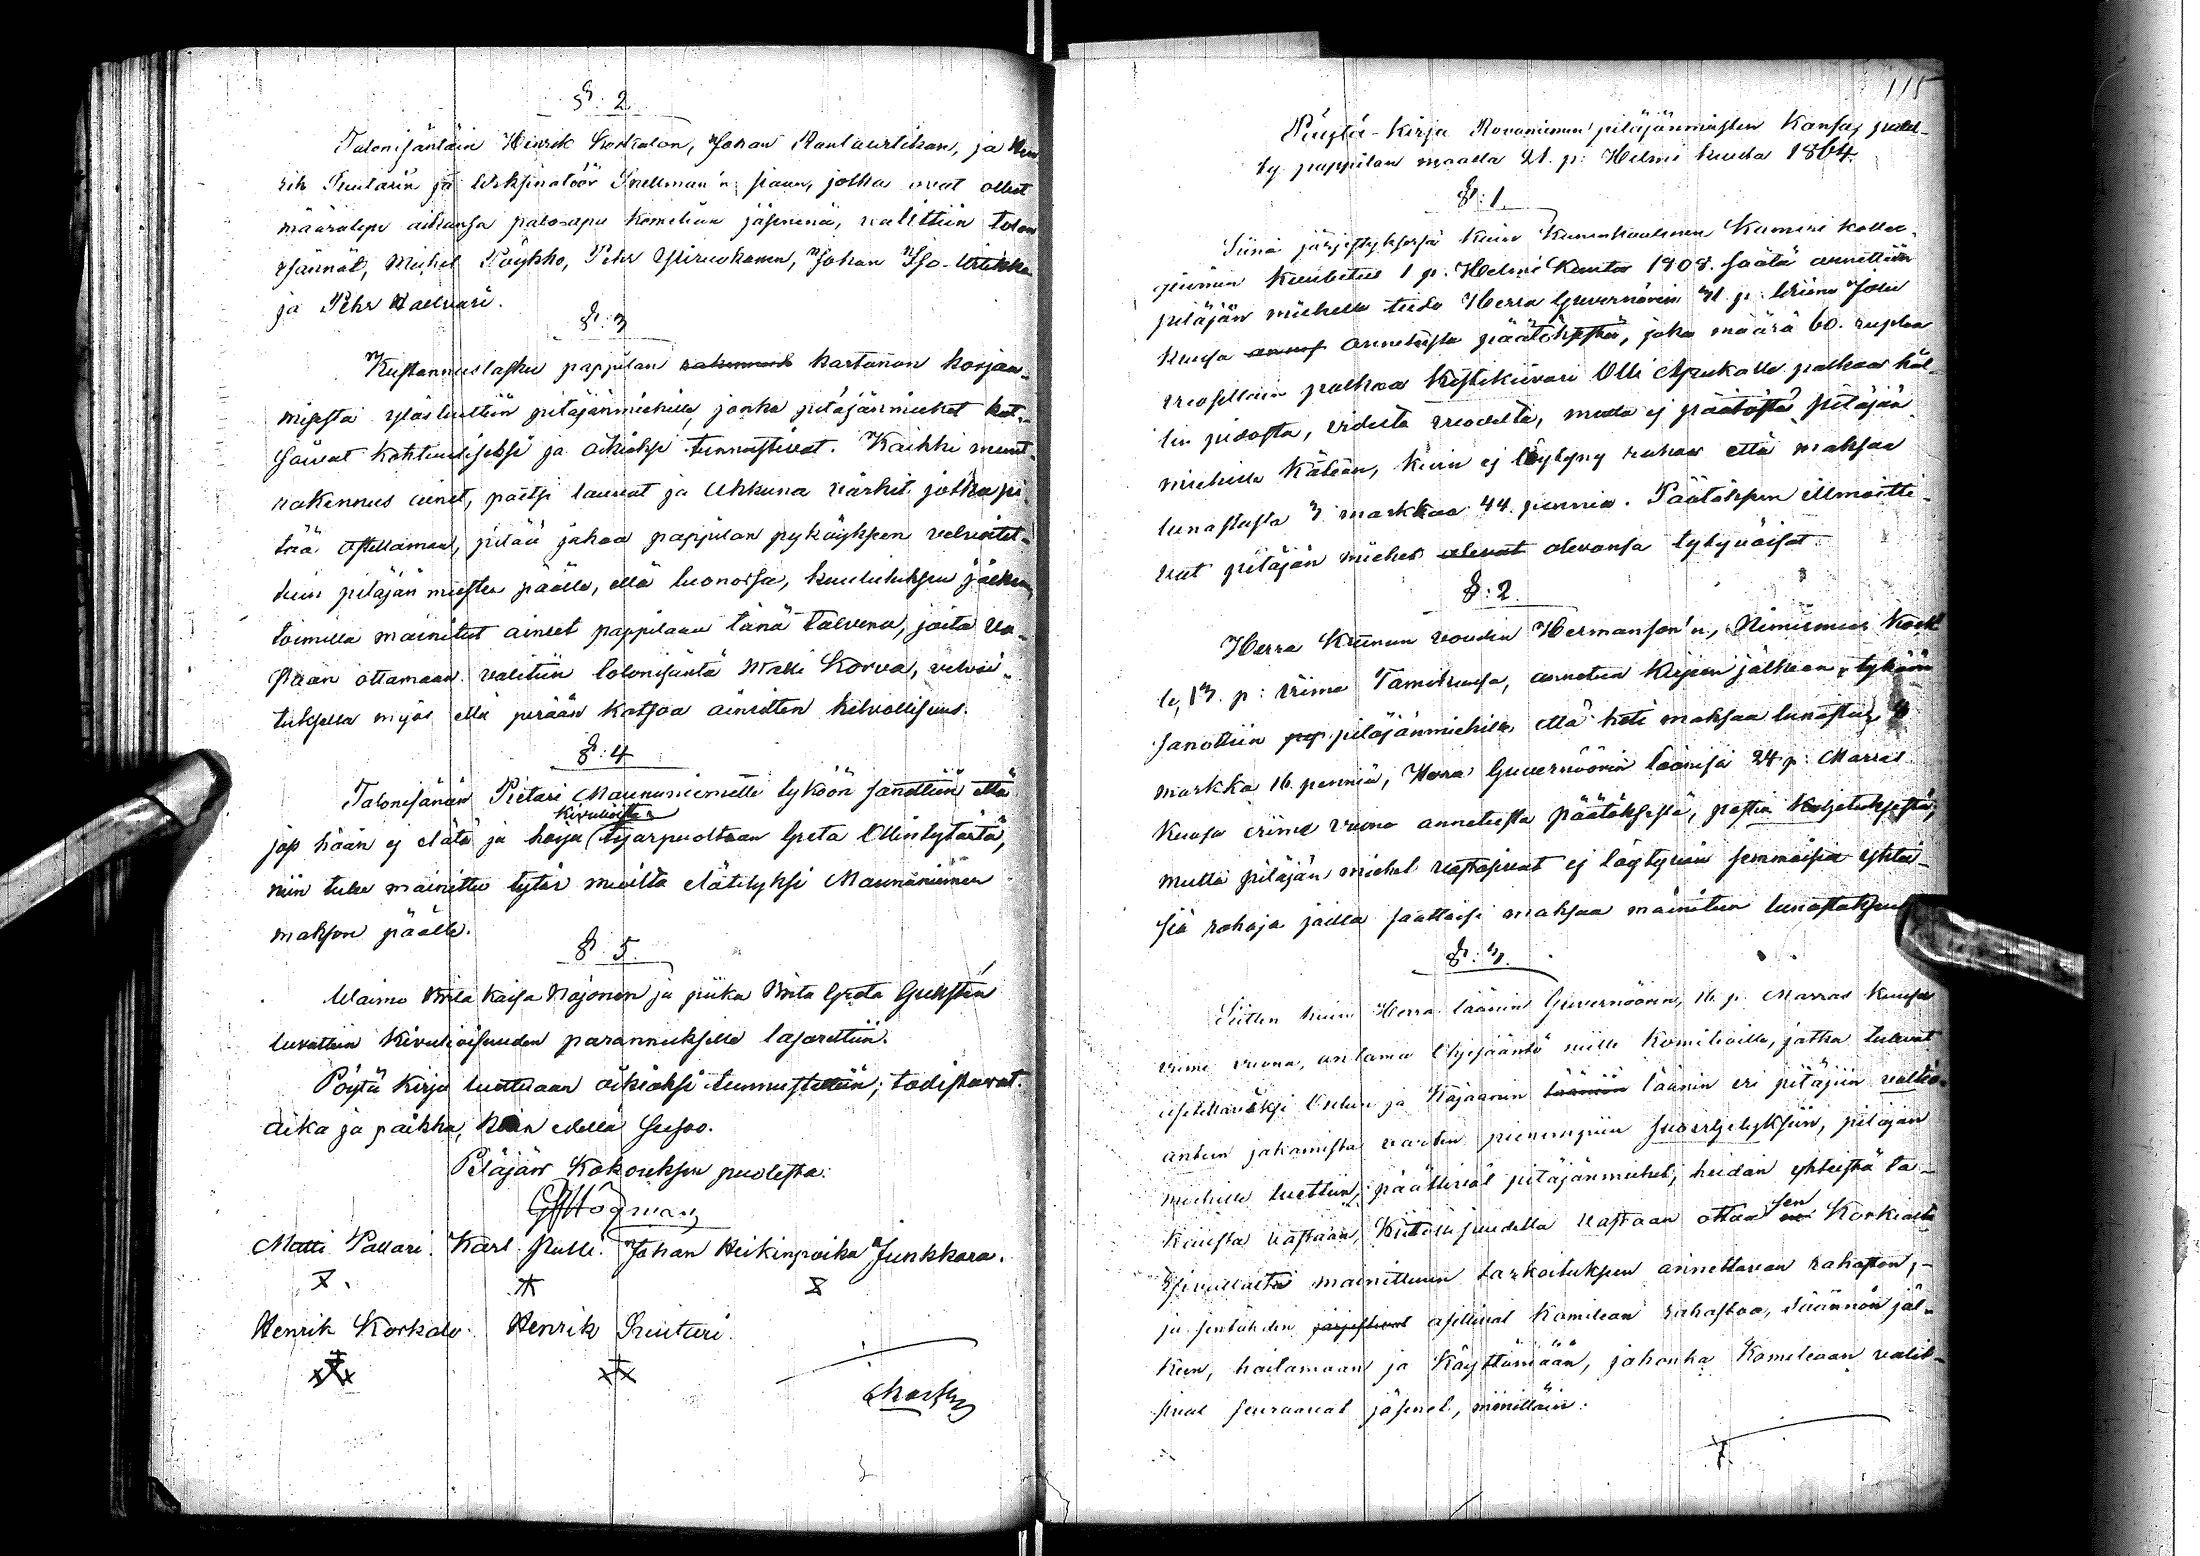 §: 2
Talonisäntäin Henrik Korkalon, Johan Rautiurtikan, ja Hen
rik Ruutarin ja Usksinatöör Snellman'n siaan, jotka ovat olleet
määrätyn aikansa palo-apu komitean jäseninä, valittiin talon
isännät, Michel Pöykkö, Pehr Yliruokanen, Johan Iso-Urtikka
ja Pehr Walluari.
§: 3
Kustannuslasku pappilan rakennus kartanon korjaa-
misesta ylösluttiin pitäjänmiehille, jonka pitäjänmiehet kat-
soivat kohtuulliseksi ja oikiaksi tunnustivat. Kaikki muut
rakennus ainet, paitsi lauvat ja Ukkuna värkit jotka pi-
tää ostettaman, pitää jakaa pappilan pykäyksen velvoitet-
tuin pitäjän miesten päälle, että luonossa, kuulutuksen jälkeen,
toimitta mainitut aineet pappilaan tänä talvena, joita vas-
staan ottamaan valittiin talonisäntä Matti Korva, velvoi-
tuksella myös että perään katsoa ainetten kelvollisuus.
§: 4
Talonisänän Pietari Maununiemelle tyköön sanottiin että
kivuloista
jos hään ej elätä ja hoija tytärpuoltaan Greta Ollintytärtä,
niin tulee mainittu tytär muilta elätetyksi Maununiemen
makson päälle.
§: 5.
Waimo Brita Kaisa Kajonen ja piika Brita Greta Gustin
luvattiin kivuloisuuden parannukselle lasarettiin.
Pöytä kirja luettuaan oikiaksi tunnustettiin; todistavat.
Aika ja paikka, kuin edellä seisoo.
Pitäjän Kokouksen puolesta:
G Högman
Matti Pallari. Karl Pulli. Johan Heikinpoika Junkkara.
Henrik Korkalo. Henrik Ruutari.
115
Pöytä-kirja Rovaniemen pitäjänmiesten kansas pidet-
ty pappilan maalla 21. p: Helmi kuuta 1864.
§: 1.
Siinä järjestyksessä kuin Kuninkaalinen Kamari kolle-
giumin kuulutus 1 p. Helmi Kuuta 1808. säätä annettiin
pitäjän miehille tiedo Herra Guvernörin 31. p. Viime Joulu
kuusa annus annetusta päätöksestä, joka määrä 60. ruplaa
vuosittain palkaa Kistikievari Olli Apukalle palkaa häl-
lin pidosta, viidestä vuodelta, muuta ej päätöstä pitäjän
miehille käteän, kuin ej löytyny rahaa että maksaa
lunastusta 3 markkaa 44 penniä. Päätöksen ilmoitti-
vat pitäjän miehet olevat olevansa tytyväiset.
§: 2.
Herra Kruunun voudin Hermanson'n, Nimismies Kock
le, 13. p: viime Tamikuusa, annetun kirjeen jälkeen, tyköön
sanottiin pij pitäjänmiehille, että heti maksaa lunastus 4
markka 16 penniä, Herra Guvernöörin läänisä 24 p: Marras
kuusa viime vuona annetusta päätöksestä, postin kuljetuksesta,
mutta pitäjän miehet vastasivat ej löytyvän semmoisia yhtei-
siä rahoja joilla saattaisi maksaa mainitun lunastuksen
§: 3.
Sitten kuin Herra läänin Guvernöörin, 16. p. Marras kuusa
viime vuona, antama Ohjesääntö niille Komiteoille, jotka tulevat
asetettaviksi Oulun ja Kajaanin läänin läänin eri pitäjiin valtio-
antein jakamista varten pienempiin suoviljelyksiin, pitäjän
miehille luettiin, päättivät pitäjänmiehet, heidän yhteistä ta-
kausta vastaan, kiitollisuudella vastaan ottaa sen Korkialta
Esivallalta mainittuun tarkoitukseen annettavan rahaston,-
ja sentähden järjestivat asettivat Komitean rahastoa, säännön jäl-
keen, hoitamaan ja Käyttämään, johonka Komiteaan valit-
sivat seuraavat jäsenet, nimittäin: